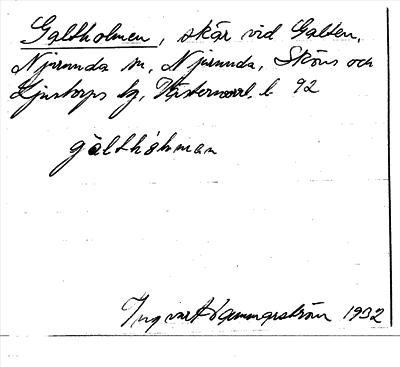 Galtholmen, skär vid Galten,
Njurunda sn, Njurunda, Sköns och
Ljustorps tg, Västernorrl. l. 92
galthòlman
Ingvar Hammarström 1932